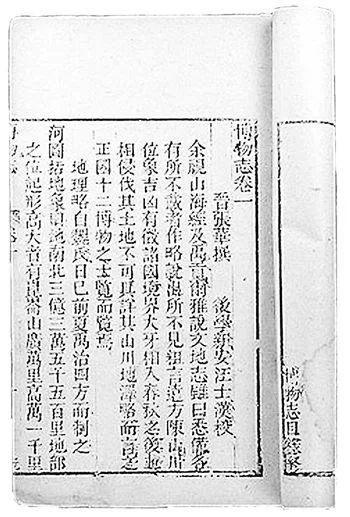 博物志卷一
晉張華撰　後學新安汪士漢校
余視山海經及禹貢爾雅說文地志雖曰悉備各
有所不載者作略說出所不見粗言遠方陳山川
位象吉凶有徵諸國境界犬牙相入春秋之後並
相侵伐其土地不可具詳其山川地澤略而言之
正國十二博物之士覽而鑒焉
地理略自魏氏目已前夏禹治四方而制之
河圖括地象曰地南北三億三萬五千五百里地部
之位起形高大者有崑崙山廣萬里高萬一千里
博物志　卷一
博物志目錄終